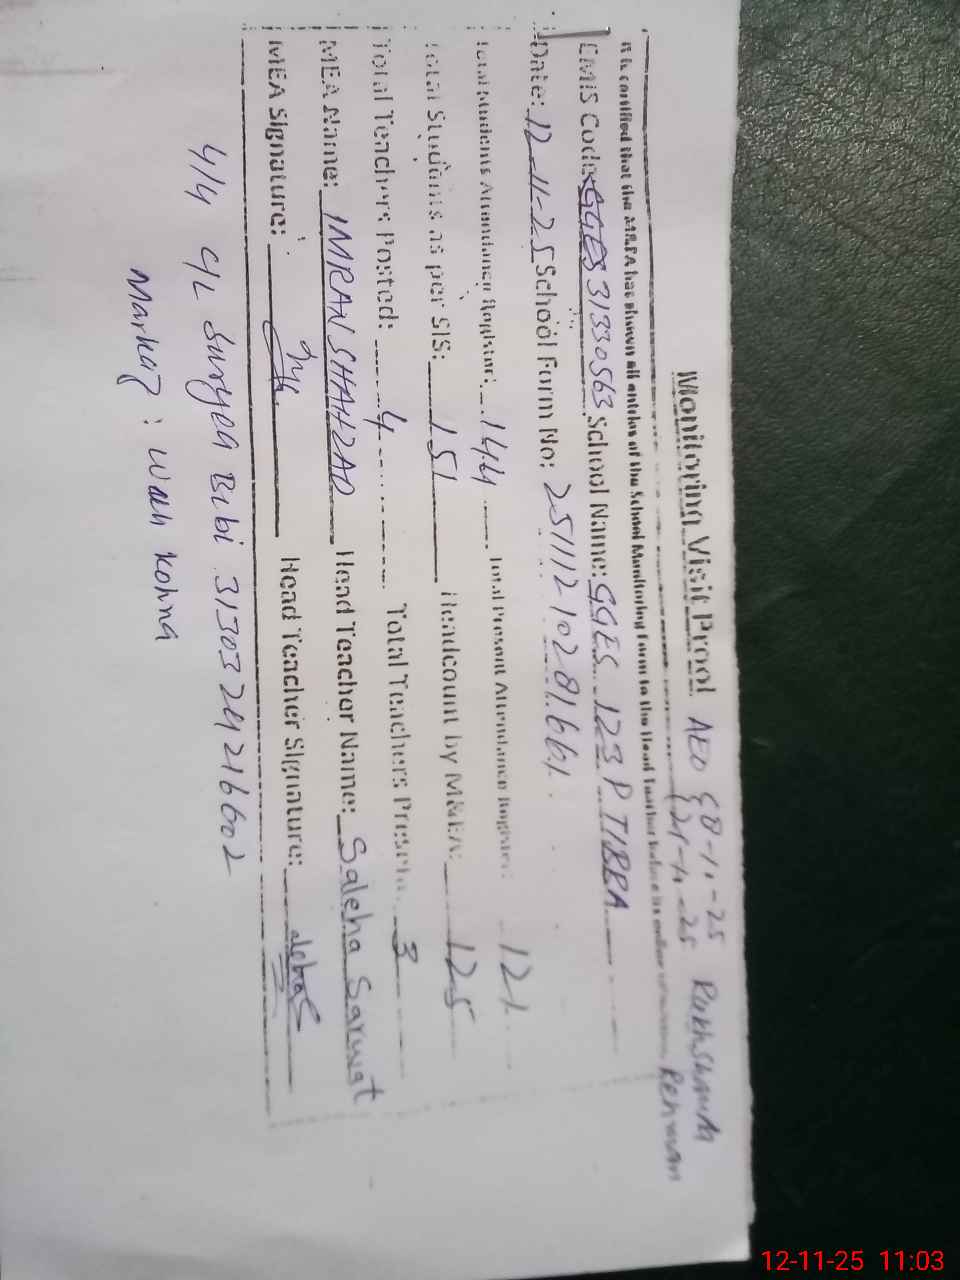 Monitoring Visit Proof AEO {8-1.-25 Rakhshanda
{21-1.-25 Rehman
It is certified that the M&EA has shown all entries of the School Monitoring Form to the Head Teacher before its online
EMIS Code: GGES 31330563 School Name: GGES 123 P TIBBA
Date: 12-11-25 School Form No: 25111210281661
Total Students Attendance Register: 144 Total Present Attendance Register: 121
Total Students as per SIS: 151 Headcount by M&EA: 125
Total Teachers Posted: 4 Total Teachers Present: 3
MEA Name: IMRAN SHAHZAD Head Teacher Name: Saleha Sarwat
MEA Signature: Head Teacher Signature:
4/4 C/L Surya Bibi 31303 2421660 2
Markaz: Wah Kohna
12-11-25 11:03